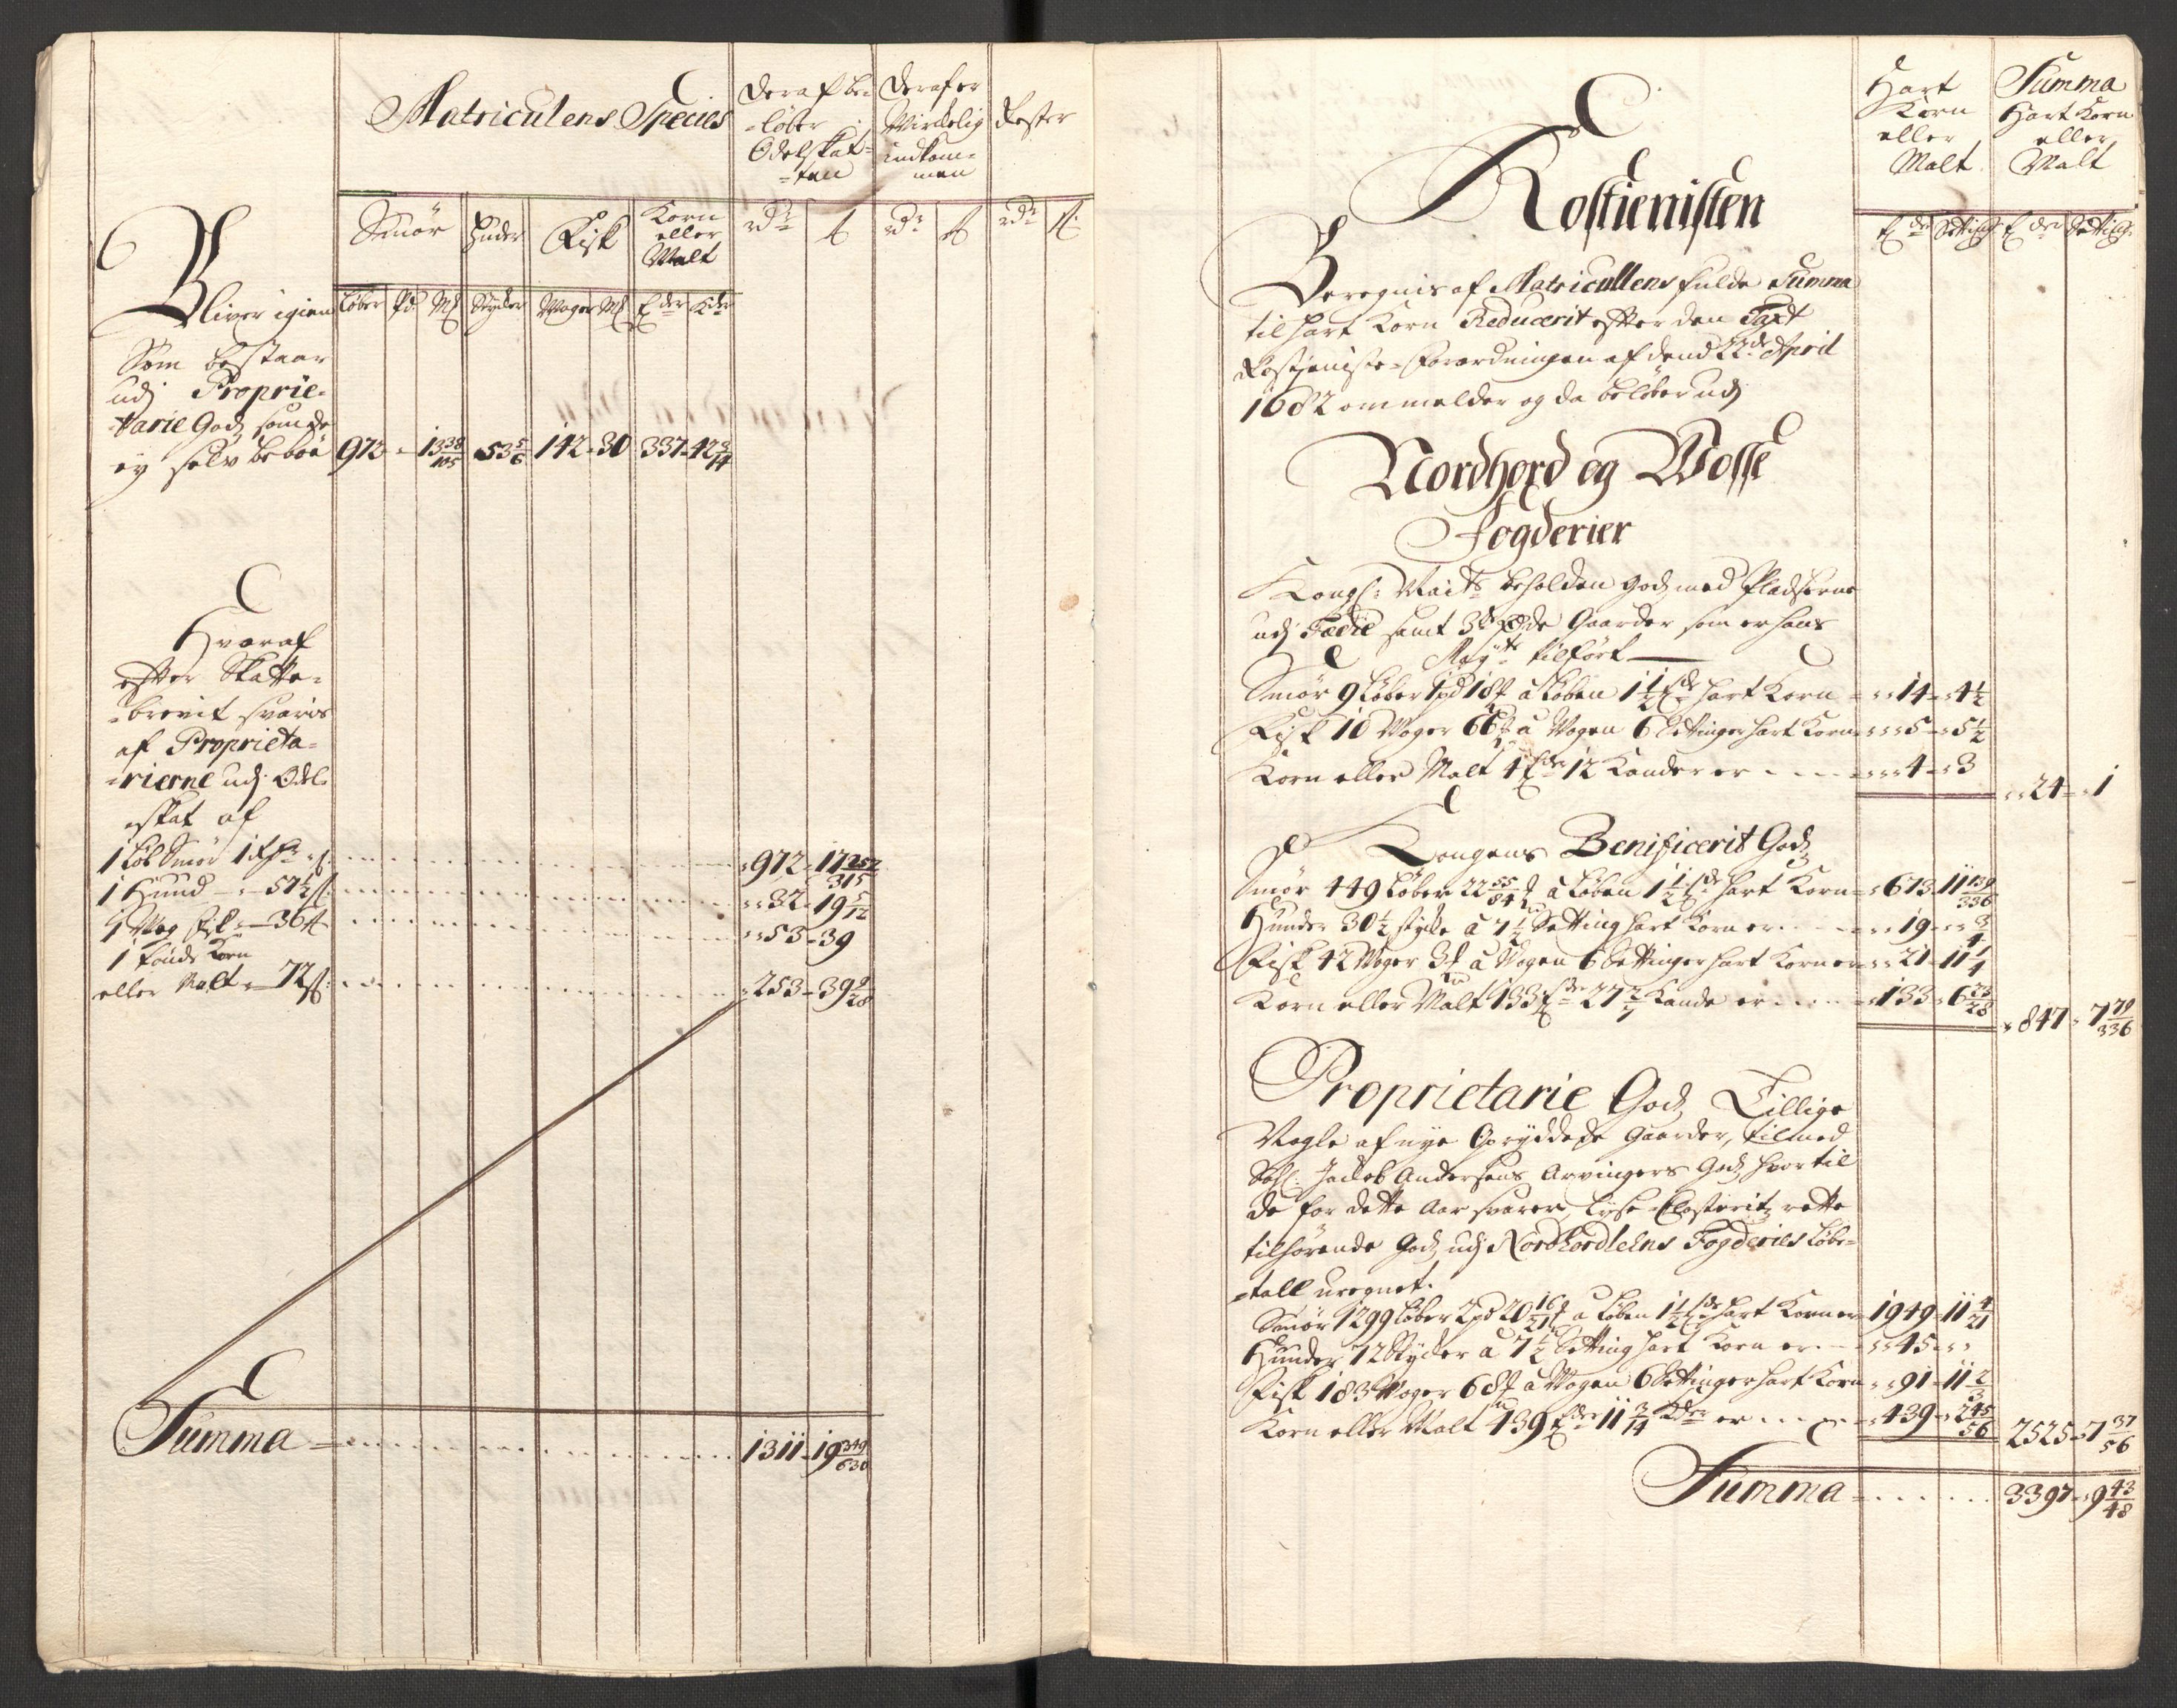 Matriculens Species
Deraf be-
-løber
Odelskat-
-ten
Deraf er
Wirkelig
indkom-
men
Rester
Smör
Huder
Fisk
Korn
eller
Malt
Løber Pd M Stycker Woger M
Bliver igien
Som bestaar
udj Proprie-
tarie Godz som de
ey selv beboe 972 - 13 38/105 53 5/6 142 - 30 337 - 42 3/14
Hvoraf
efter Skatte-
brevit svaris
af Proprieta-
rierne udj Odel-
skat af
1 Løb Smör 1 972 - 17 252/315
1 Hund - 57 1/2 32 - 19 5/12
1 Wog Fisk - 36 53 - 39
1 tønde Korn
eller Malt - 72 253 - 39 9/28
Summa 1311 - 19 349/630
Hart
Korn
eller
Malt
Summa
Hart Korn
eller
Malt
Rostienisten
Beregnis af Matricullens fulde Summa
til hart Korn Reducerit efter den Taxt
Rostjeniste-Forordningen af dend 22de April
1682 ommelder og da beløber udj
Nordhord og Wosse
Fogderier
Kongl: Maits beholden Godz med Pladserne
udj Fædie samt 3de øde Gaarder som er hans
Mayts tilført
Smör 9 Løber 1 pd 18 à Løben 1 1/2 hart Korn 14 - 4 1/2
Fisk 10 Woger 66 à Wogen 6 Settinger hart Korn 5 - 5 1/2
Korn eller Malt 4 12 Kander er 4 - 3
24 - 1
Kongens Benificerit Godz
Smör 449 Løber 22 55/84 à Løben 1 1/2 hart Korn 673 - 11 139/336
Hunder 30 1/2 stycke à 7 1/2 Setting hart Korn er 19 - 3/4
Fisk 42 Woger 3 à Wogen 6 Settinger hart Korn er 21 - 11 1/4
Korn eller Malt 133 27 2/7 Kande er 133 - 6 23/28
847 - 7 79/336
Proprietarie Godz Tillige
Nogle af nye Opryddede Gaarder, tilmed
Sahl: Jacob Andersens Arvingers Godz hvortil
de for dette Aar svarer, Lyse Closterits rette
tilhørende Godz udj Nordhordlehns Fogderies Løbe-
-tall uregnet.
Smör 1299 Løber 2 pd 20 16/21 à Løben 1 1/2 hart Korn er 1949 - 11 4/21
Hunder 72 Stycker à 7 1/2 Setting hart Korn er 45
Fisk 183 Woger 68 à Wogen 6 Settinger hart Korn 91 - 11 2/3
Korn eller Malt 439 11 3/14 er 439 - 2 45/56
2525 - 7 37/56
Summa 3397 - 9 43/48